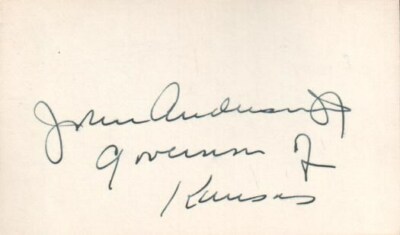 John Anderson Jr
Governor of
Kansas